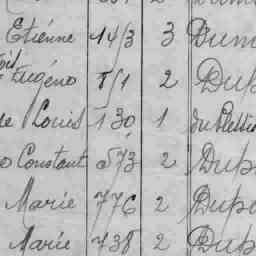 Etiénne 1413 3 Dum
Eugéno 81 2 Dup
Louis 130 1 du Plessi
Constant 573 2 Dup
Marie 776 2 Dupo
Marie 738 2 Dup